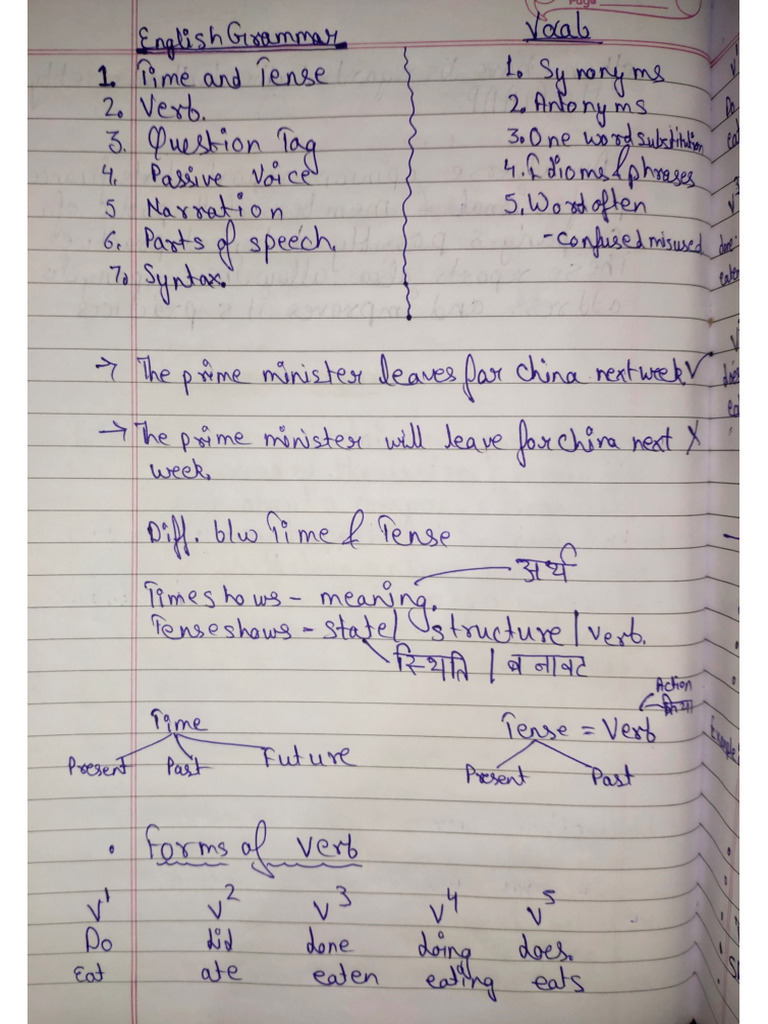 Page
English Grammar
1. Time and Tense
2. Verb.
3. Question Tag
4. Passive Voice
5 Narration
6. Parts of speech.
7. Syntax.
Vocab
1. Synonyms
2. Antonyms
3. One word substitution
4. Idioms & phrases
5. Word often
-confused misused
→ The prime minister leaves for China next week ✓
→ The prime minister will leave for china next X
week.
Diff. b/w Time & Tense
अर्थ
Time shows - meaning.
Tense shows - state/ structure / verb.
स्थिति / बनावट
Action
क्रिया
Time
Present Past Future
Tense = Verb
Present Past
• Forms of verb
V1 V2 V3 V4 V5
Do did done doing does.
Eat ate eaten eating eats